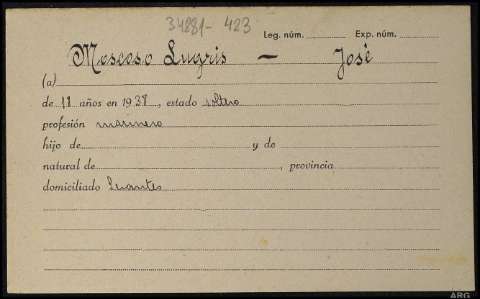 34281- 423
Leg. núm. Exp. núm.
Moscoso Lugris — José
(a)
de 18 años en 1938, estado soltero
profesión marinero
hijo de y de
natural de , provincia
domiciliado
ARG